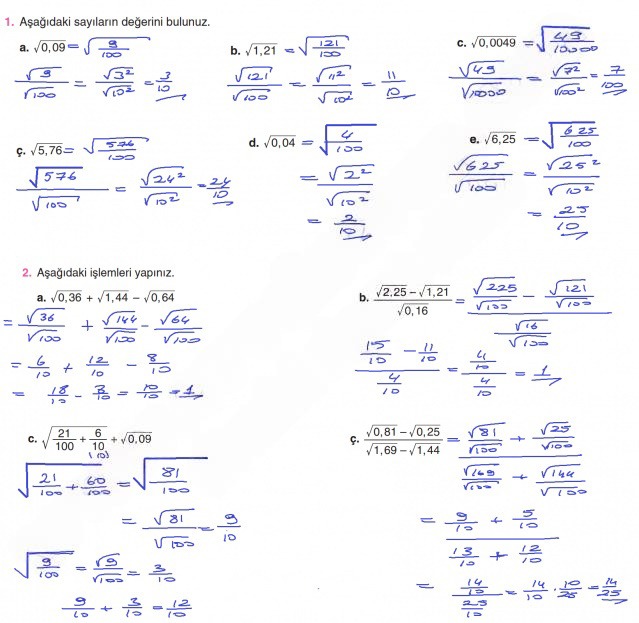 1. Aşağıdaki sayıların değerini bulunuz.
a. √0,09 = √(9/100)
√9/√100 = √3²/√10² = 3/10
b. √1,21 = √(121/100)
√121/√100 = √11²/√10² = 11/10
c. √0,0049 = √(49/10000)
√49/√10000 = √7²/√100² = 7/100
ç. √5,76 = √(576/100)
√576/√100 = √24²/√10² = 24/10
d. √0,04 = √(4/100)
= √2²/√10²
= 2/10
e. √6,25 = √(625/100)
√625/√100 = √25²/√10²
= 25/10
2. Aşağıdaki işlemleri yapınız.
a. √0,36 + √1,44 − √0,64
= √36/√100 + √144/√100 − √64/√100
= 6/10 + 12/10 − 8/10
= 18/10 − 8/10 = 10/10 = 1
b. (√2,25 − √1,21)/√0,16 = (√225/√100 − √121/√100)/(√16/√100)
(15/10 − 11/10)/(4/10) = (4/10)/(4/10) = 1
c. √(21/100 + 6/10) + √0,09
(10)
√(21/100 + 60/100) = √(81/100)
= √81/√100 = 9/10
√(9/100) = √9/√100 = 3/10
9/10 + 3/10 = 12/10
ç. (√0,81 − √0,25)/(√1,69 − √1,44) = (√81/√100 + √25/√100)/(√169/√100 + √144/√100)
= (9/10 + 5/10)/(13/10 + 12/10)
= (14/10)/(25/10) = 14/10 · 10/25 = 14/25